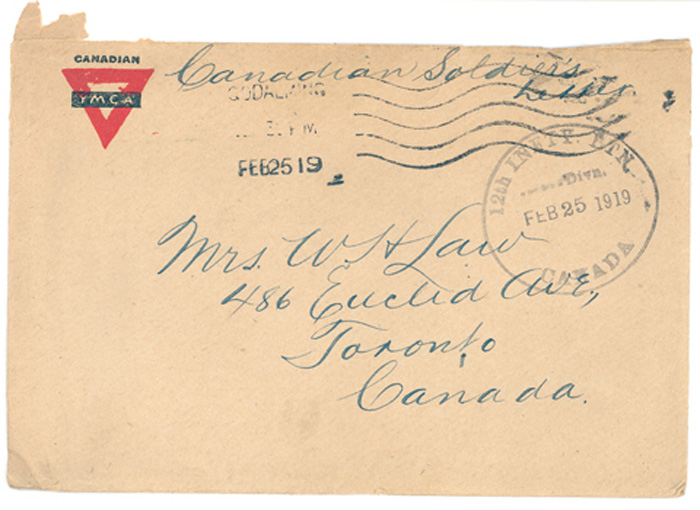 CANADIAN
YMCA
Canadian Soldier's
Letter
GODALMING
30 PM
FEB25 19
12th INFTY. BTN.
Divn.
FEB 25 1919
CANADA
Mrs. W H Law
486 Euclid Ave,
Toronto
Canada.